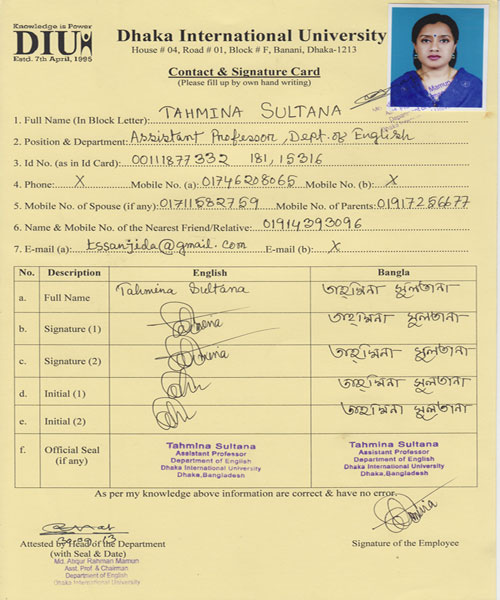 Knowledge is Power
DIU
Estd. 7th April, 1995
Dhaka International University
House # 04, Road # 01, Block # F, Banani, Dhaka-1213
Contact & Signature Card
(Please fill up by own hand writing)
1. Full Name (In Block Letter): TAHMINA SULTANA
2. Position & Department: Assistant Professor, Dept. of English
3. Id No. (as in Id Card): 00111877332 181, 15316
4. Phone: X Mobile No. (a): 01746208065 Mobile No. (b): X
5. Mobile No. of Spouse (if any): 01711532759 Mobile No. of Parents: 01917256677
6. Name & Mobile No. of the Nearest Friend/Relative: 01914393096
7. E-mail (a): tssanjida@gmail.com E-mail (b): X
No. Description English Bangla
a. Full Name Tahmina Sultana তাহমিনা সুলতানা
b. Signature (1) তাহমিনা সুলতানা
c. Signature (2) তাহমিনা সুলতানা
d. Initial (1) তাহমিনা সুলতানা
e. Initial (2) তাহমিনা সুলতানা
f. Official Seal (if any)
Tahmina Sultana
Assistant Professor
Department of English
Dhaka International University
Dhaka, Bangladesh
Tahmina Sultana
Assistant Professor
Department of English
Dhaka International University
Dhaka, Bangladesh
As per my knowledge above information are correct & have no error.
Attested by Head of the Department
(with Seal & Date)
Md. Atiqur Rahman Mamun
Asst. Prof. & Chairman
Department of English
Dhaka International University
Signature of the Employee